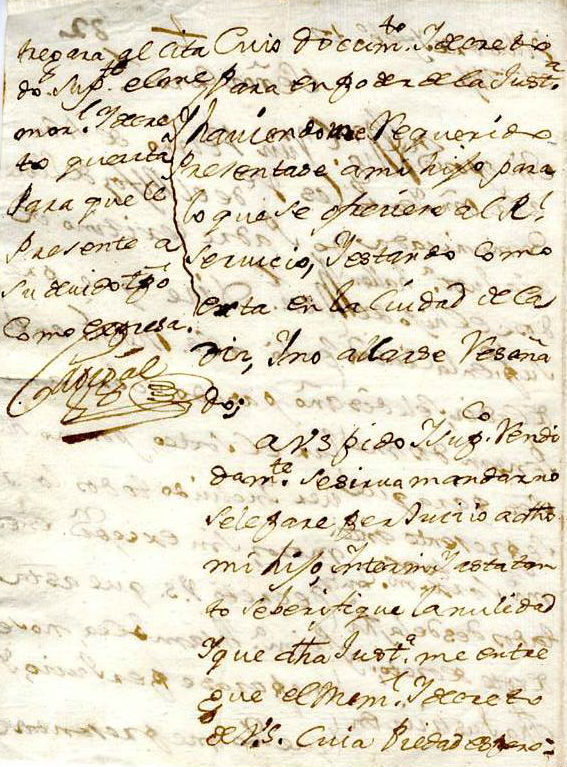 tregara al cita
do Sup.te el me
mor.l Y decre
to que cita
Para que le
Presente a
su devido tpo
Como expresa.
Cuio Docum.to Y decreto
Para en poder de la Just.a
Y haviendome Requerido
Presentase a mi hijo para
lo que se ofreciere al R.l
Servicio, Y estando como
esta en la Ciudad de Ca
diz, Y no allarse Reseña
do;
a VS pido Y Sup.co Rendi
dam.te se sirva mandar no
se le pare perJuicio a dho
mi hijo, Interin Y asta tan
to se berifique la nulidad
Y que dha Just.a me entre
gue el Mem.l Y decreto
de V.S. Cuia Piedad espero=